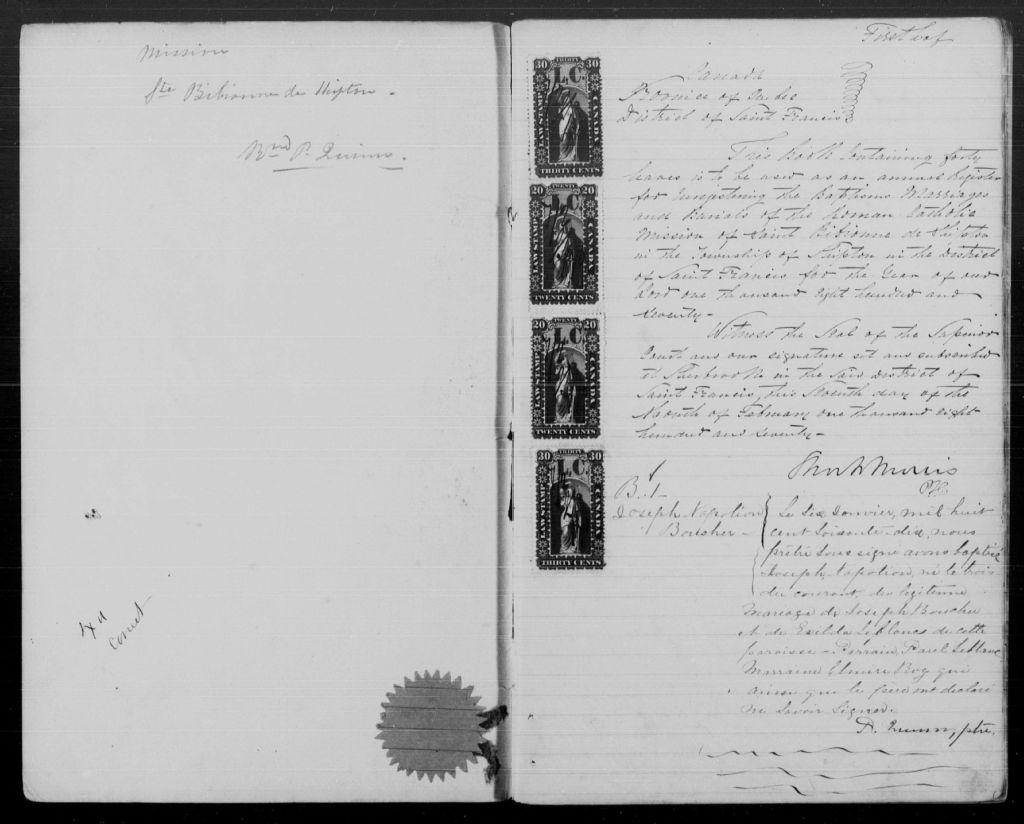 Mission
Ste Bibianne de Shipton -
Rvd P. Quinn.
Exd
Correct
First leaf
THIRTY
30 L.C. 30
LAW STAMP
CANADA
THIRTY CENTS
TWENTY
20 L.C. 20
LAW STAMP
CANADA
TWENTY CENTS
TWENTY
20 L.C. 20
LAW STAMP
CANADA
TWENTY CENTS
THIRTY
30 L.C. 30
LAW STAMP
CANADA
THIRTY CENTS
Canada
Province of Quebec
District of Saint Francis
This Book Containing forty
leaves is to be used as an annual Register
for the Baptisms Marriages
and Burials of the Roman Catholic
Mission of Saint Bibianne de Shipton
in the Township of Shipton in the District
of Saint Francis for the Year of our
Lord one thousand Eight hundred and
seventy -
Witness the Seal of the Superior
Court and our signature set and subscribed
at Sherbrooke in the said District of
Saint Francis, this day of the
Month of February one thousand eight
hundred and seventy -
Morris
B. 1
Joseph Napoléon
Boucher -
Le six Janvier, mil huit
cent soixante-dix, nous
prêtre sous signé avons baptisé
Joseph Napoléon, né le trois
du courant, du légitime
mariage de Joseph Boucher
et de Exilda Leblanc de cette
paroisse - Parrain, Paul Leblanc
Marraine Elmire Roy qui
ainsi que le père ont déclaré
ne savoir signer.
P. Quinn, ptre.